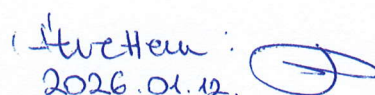 Átvettem:
2026.01.12.